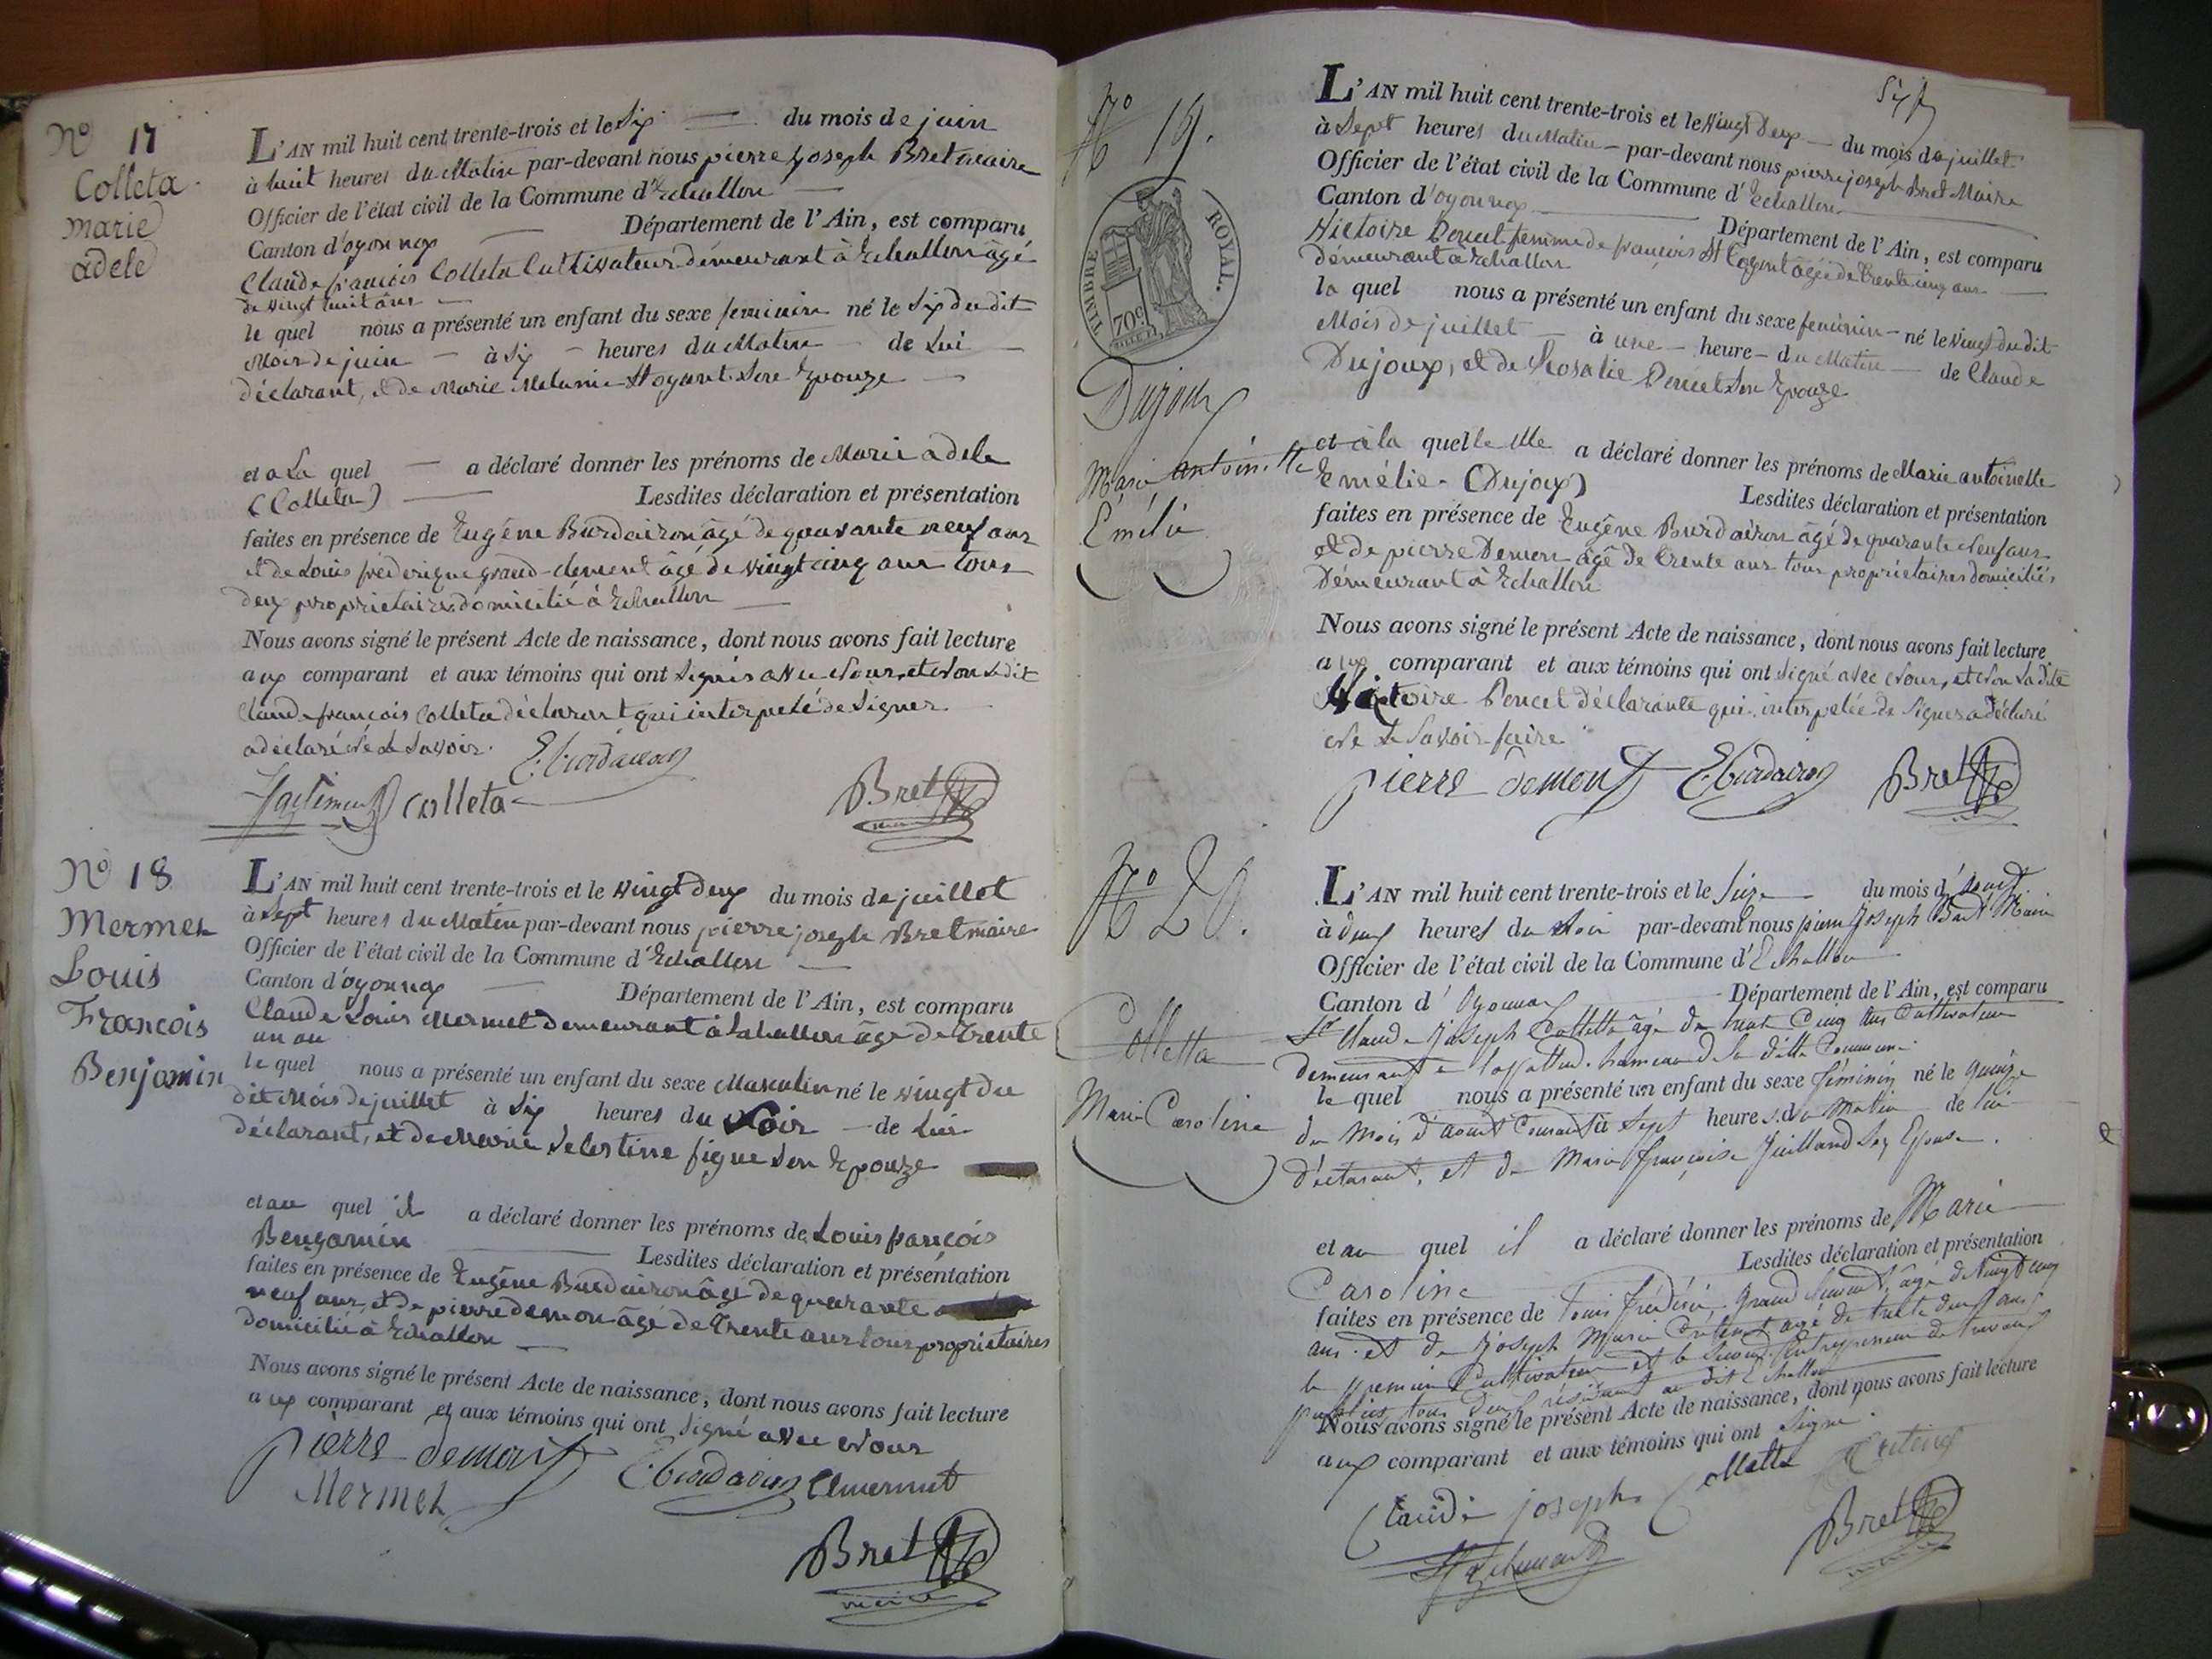 N° 17
Colleta
marie
adele
L'AN mil huit cent trente-trois et le Six du mois de juin
à huit heures du Matin par-devant nous pierre joseph Bret maire
Officier de l'état civil de la Commune d'Echallon
Canton d'oyonnax Département de l'Ain, est comparu
Claude françois Colleta Cultivateur demeurant à Echallon âgé
de vingt huit ans
le quel nous a présenté un enfant du sexe feminin né le Six du dit
Mois de juin à Six heures du Matin de Lui
déclarant, et de Marie Melanie Son Epouze
et a La quel a déclaré donner les prénoms de Marie adele
(Colleta) Lesdites déclaration et présentation
faites en présence de Eugêne Burdairon âgé de quarante neuf ans
et de Louis fréderique grand-clement âgé de vingt cinq ans tous
deux proprietaires domicilié à Echallon
Nous avons signé le présent Acte de naissance, dont nous avons fait lecture
aux comparant et aux témoins qui ont Signés avec Nous, et Non Le dit
Claude françois Colleta déclarant qui interpelé de Signer
a déclaré Ne Le Savoir. E. burdairon
colleta Bret
maire
N° 18
Mermet
Louis
François
Benjamin
L'AN mil huit cent trente-trois et le vingt deux du mois de juillet
à Sept heures du Matin par-devant nous pierre joseph Bret maire
Officier de l'état civil de la Commune d'Echallon
Canton d'oyonnax Département de l'Ain, est comparu
Claude Louis Mermet demeurant à Echallon âgé de trente
un an
le quel nous a présenté un enfant du sexe Masculin né le vingt du
dit Mois de juillet à Six heures du Soir de Lui
déclarant, et de Marie Selestine figue Son Epouze
et au quel il a déclaré donner les prénoms de Louis françois
Benjamin Lesdites déclaration et présentation
faites en présence de Eugêne Burdairon âgé de quarante
neuf ans, et de pierre demon âgé de trente ans tous proprietaires
domicilié à Echallon
Nous avons signé le présent Acte de naissance, dont nous avons fait lecture
aux comparant et aux témoins qui ont Signé avec Nous
pierre demon E. burdairon
Mermet
Bret
maire
N° 19.
TIMBRE ROYAL.
70c
Dujoux
Marie antoinette
Emélie
L'AN mil huit cent trente-trois et le vingt deux du mois de juillet
à Sept heures du Matin par-devant nous pierre joseph Bret Maire
Officier de l'état civil de la Commune d'Echallon
Canton d'oyonnax Département de l'Ain, est comparu
Victoire Poncet femme de françois âgée de trente cinq ans
demeurant à Echallon
la quel nous a présenté un enfant du sexe feminin né le vingt du dit
Mois de juillet à une heure du Matin de Claude
Dujoux, et de Rosalie Poncet Son Epouze
et à la quelle elle a déclaré donner les prénoms de Marie antoinette
Emélie. (Dujoux) Lesdites déclaration et présentation
faites en présence de Eugêne Burdairon âgé de quarante neuf ans
et de pierre Demon âgé de trente ans tous proprietaires domiciliés
Demeurant à Echallon
Nous avons signé le présent Acte de naissance, dont nous avons fait lecture
aux comparant et aux témoins qui ont Signé avec Nous, et Non La dite
Victoire Poncet déclarante qui interpelée de Signer a déclaré
Ne Le Savoir faire
pierre demon E. burdairon Bret
N° 20.
Colletta
Marie Caroline
L'AN mil huit cent trente-trois et le Seize du mois d'Aout
à deux heures du Soir par-devant nous pierre Joseph Bret Maire
Officier de l'état civil de la Commune d'Echallon
Canton d'Oyonnax Département de l'Ain, est comparu
Sr Claude Joseph Colletta âgé de trente Cinq ans Cultivateur
demeurant a hameau de la ditte Commune
le quel nous a présenté un enfant du sexe féminin né le quinze
du Mois d'aout Courant à Sept heures du Matin de lui
déclarant, et de Marie françoise Juilland Son Epouse.
et au quel il a déclaré donner les prénoms de Marie
Caroline Lesdites déclaration et présentation
faites en présence de Louis frédéric Grand Clement, âgé de Vingt cinq
ans et de Joseph Marie agé de trente deux ans
le premier Cultivateur et le Second Entrepreneur de travaux
publics, tous deux résidant au dit Echallon
Nous avons signé le présent Acte de naissance, dont nous avons fait lecture
aux comparant et aux témoins qui ont Signé
Claude joseph Colletta
Bret
maire